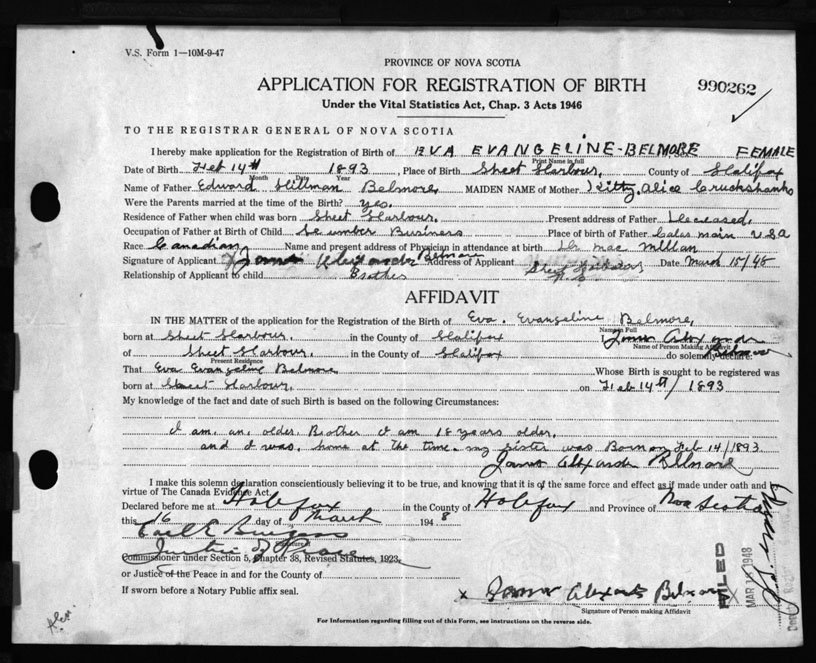 V.S. Form 1—10M-9-47
PROVINCE OF NOVA SCOTIA
APPLICATION FOR REGISTRATION OF BIRTH
990262
Under the Vital Statistics Act, Chap. 3 Acts 1946
TO THE REGISTRAR GENERAL OF NOVA SCOTIA
I hereby make application for the Registration of Birth of EVA EVANGELINE-BELMORE FEMALE
Print Name in full
Date of Birth Feb 14th 1893, Place of Birth Sheet Harbour, County of Halifax
Month Date Year
Name of Father Edward Hillman Belmore, MAIDEN NAME of Mother Kitty Alice Cruckshanks
Were the Parents married at the time of the Birth? Yes.
Residence of Father when child was born Sheet Harbour. Present address of Father Deceased.
Occupation of Father at Birth of Child Lumber Business Place of birth of Father Calas main USA
Race Canadian Name and present address of Physician in attendance at birth Dr Mac Millan
Signature of Applicant James Alexander Belmore Address of Applicant Sheet Harbour Date March 15/48
Relationship of Applicant to child Brother
AFFIDAVIT
IN THE MATTER of the application for the Registration of Birth of Eva. Evangeline Belmore,
Name in Full
born at Sheet Harbour. in the County of Halifax I James Alexander
Name of Person Making Affidavit
of Sheet Harbour. in the County of Halifax Belmore do solemnly declare:
Present Residence
That Eva Evangeline Belmore Whose Birth is sought to be registered was
born at Sheet Harbour. on Feb 14th/ 1893
My knowledge of the fact and date of such Birth is based on the following Circumstances:
I am, an, older. Brother I am 18 years older.
and I was. home at the time. my sister was Born on Feb 14/1893
James Alexander Belmore
I make this solemn declaration conscientiously believing it to be true, and knowing that it is of the same force and effect as if made under oath and by
virtue of The Canada Evidence Act.
Declared before me at Halifax in the County of Halifax and Province of Nova Scotia
this 16 day of March 1948
Justice of Peace
Commissioner under Section 5, Chapter 38, Revised Statutes, 1923,
or Justice of the Peace in and for the County of
If sworn before a Notary Public affix seal.
x James Alexander Belmore x
Signature of Person making Affidavit
FILED
MAR 1948
For Information regarding filling out of this Form, see instructions on the reverse side.